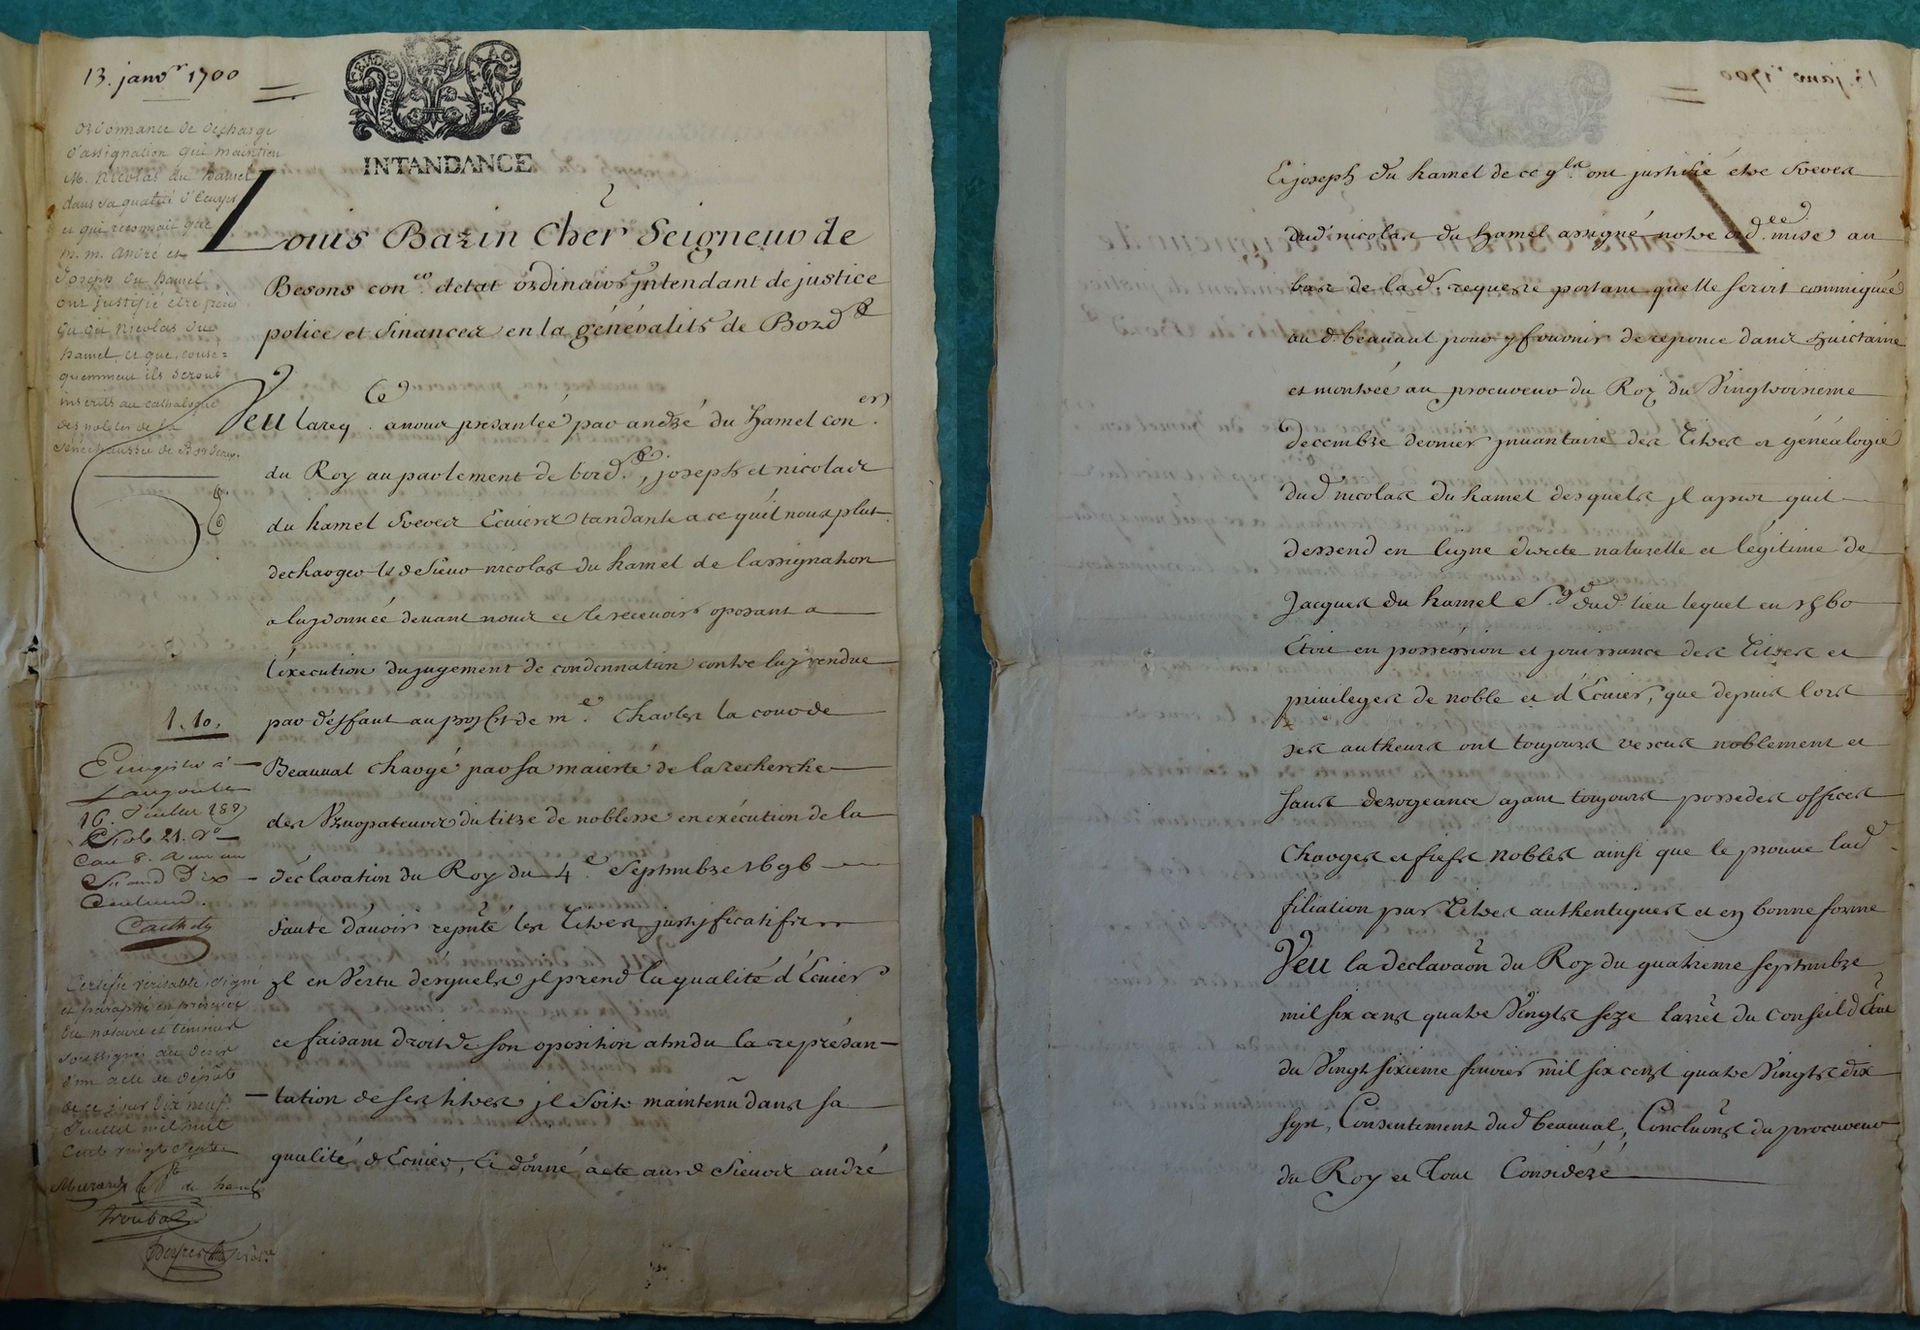 13. janvr 1700
INTANDANCE
ordonnance de décharge
d'assignation qui maintien
M. Nicolas du hamel
dans sa qualité d'Ecuyer
et qui reconnait que
m.m. André et
Joseph du hamel
ont justifié etre frères
du dit Nicolas du
hamel et que, conse=
quemment ils seront
inscrits au cathalogue
des nobles de la
Sénéchaussée de Bordeaux.
Louis Bazin Cher Seigneur de
Besons coner detat ordinaire jntendant de justice
police et finances en la généralité de Bordx
Veu la reqte a nous presantée par andré du hamel coner
du Roy au parlement de bordx, joseph et nicolas
du hamel freres Ecuiers tandante a ce quil nous plut
decharger ledt sieur nicolas du hamel de lassignation
a luy donnée devant nous et le recevoir oposant a
lexecution du jugement de condemnation contre luy rendue
par deffaut au proffit de me Charles la cour de
Beauval chargé par sa majesté de la recherche
des Uzurpateurs du titre de noblesse en exécution de la
déclaration du Roy du 4e Septembre 1696
faute d'avoir reputé les titres justifficatifs
et en vertu desquels jl prend la qualité d'Ecuier
ce faisant droit de son oposition atandu la représan-
tation de ses titres jl soit maintenu dans sa
qualité d'Ecuier, et donné acte auxd Sieurs andré
1.10.
Enregistré à
Langon le
16 Juillet 18
folo 21. Vo
Case 8. Reçu un
franc dix
Centimes.
Certifié véritable, signé
et paraphé en présence
du notaire et témoins
soussignés au desir
d'un acte de dépôt
de ce jour dix neuf
Juillet mil huit
cent vingt sept
du hamel
Et joseph du hamel de ce qls ont justifié etre freres
dud nicolas du hamel assigné notre ordce mise au
bas de lad. requeste portant quelle seroit commniquée
aud beauval pour y fournir de reponce dans huictaine
et montrée au procureur du Roy du vingtroisieme
decembre dernier jnvantaire des titres et généalogie
dud nicolas du hamel desquels jl apert quil
dessend en ligne directe naturelle et légitime de
Jacques du hamel Sgr dud lieu lequel en 1560
Etoit en possession et jouissance des titres et
privileges de noble et d'Ecuier, que depuis lors
ses autheurs ont toujours vescus noblement et
sans derogeance ayant toujours possedes offices
charges et fiefs nobles ainsi que le prouve lad
filiation par titres authentiques et en bonne forme
Veu la declaraon du Roy du quatrieme septembre
mil six cens quatre vingts seze larrêt du Conseil d'Etat
du vingt sixieme fevrier mil six cens quatre vingts dix
sept, Consentiment dud beauval, Concluons du procureur
du Roy et tout Consideré